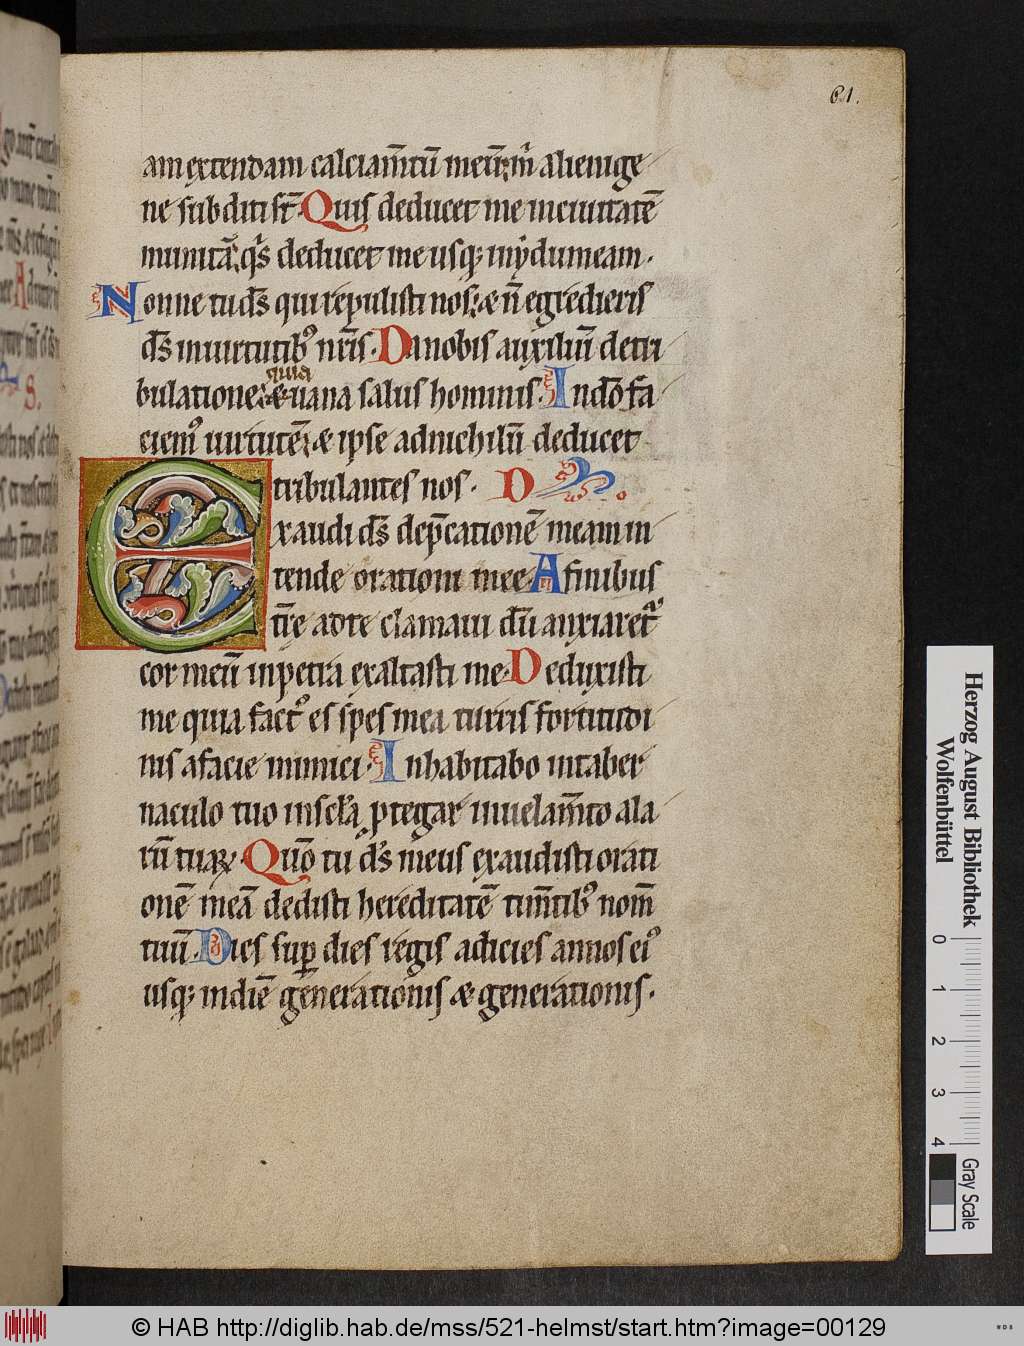 61.
am extendam calciam̄tū meū: m̄ alienige
ne subditi st̄. Quis deducet me inciuitatē
munitā, q̄s deducet me usq; inẏdumeam.
Nonne tu ds̄ qui repulisti nos: & n̄ egredieris
ds̄ inuirtutib᷒ nr̄is. Da nobis auxiliū detri
bulatione: & quia uana salus hominis. Indō fa
ciem᷒ uirtutē: & ipse adnichilū deducet
tribulantes nos. D
Exaudi ds̄ dep̄cationē meam in
tende orationi mee. A finibus
tr̄e adte clamaui dū anxiaret᷑
cor meū inpetra exaltasti me. Deduxisti
me quia fact᷒ es spes mea turris fortitudi
nis afacie inimici. Inhabitabo intaber
naculo tuo inscl̄a ꝓtegar inuelam̄to ala
rū tuaꝝ. Quō tu ds̄ meus exaudisti orati
onē meā dedisti hereditatē tim̄tib᷒ nom̄
tuū. Dies sup̲ dies regis adicies annos ei᷒
usq; indiē generationis & generationis.
Herzog August Bibliothek
Wolfenbüttel
0 1 2 3 4
Gray Scale
© HAB http://diglib.hab.de/mss/521-helmst/start.htm?image=00129